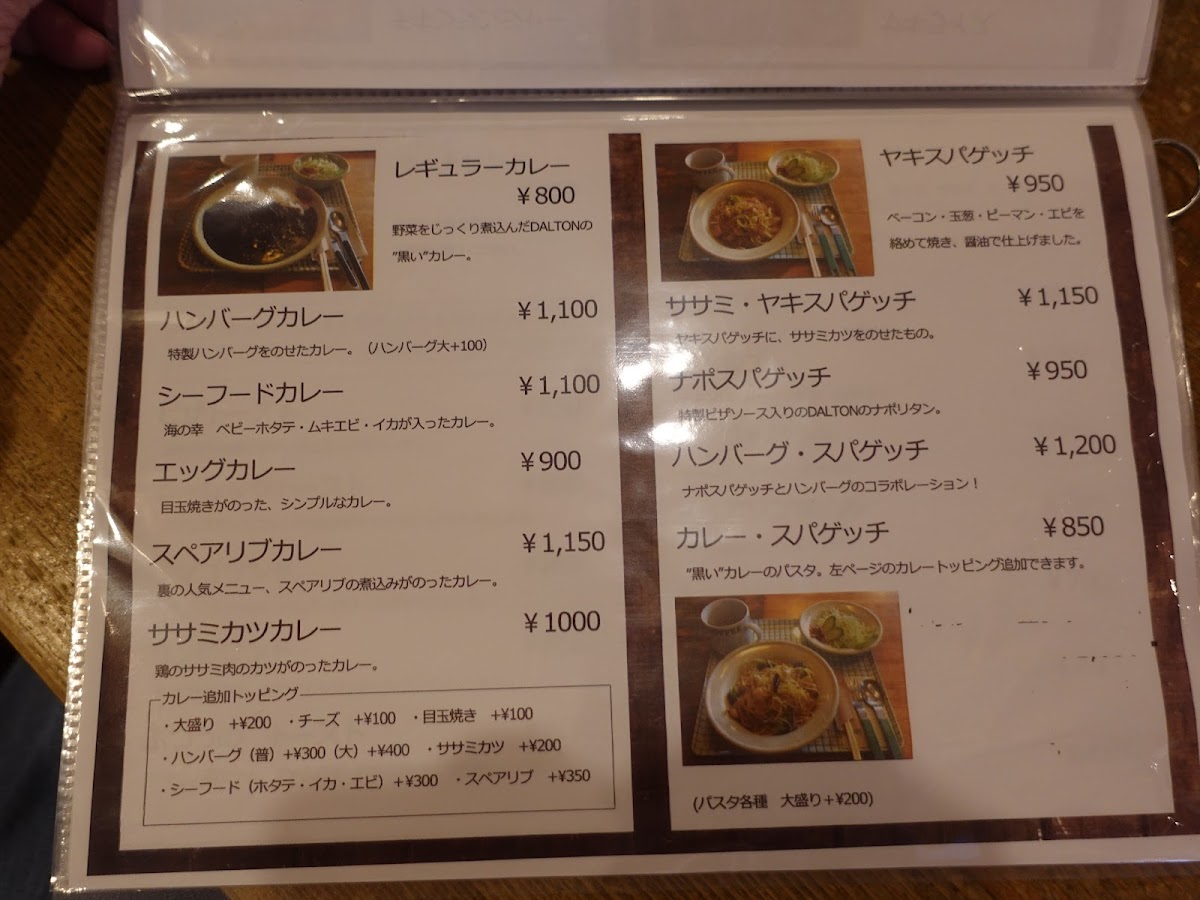 レギュラーカレー
￥800
野菜をじっくり煮込んだDALTONの
"黒い"カレー。
ハンバーグカレー ￥1,100
特製ハンバーグをのせたカレー。（ハンバーグ大+100）
シーフードカレー ￥1,100
海の幸　ベビーホタテ・ムキエビ・イカが入ったカレー。
エッグカレー ￥900
目玉焼きがのった、シンプルなカレー。
スペアリブカレー ￥1,150
裏の人気メニュー、スペアリブの煮込みがのったカレー。
ササミカツカレー ￥1000
鶏のササミ肉のカツがのったカレー。
カレー追加トッピング
・大盛り　+¥200　・チーズ　+¥100　・目玉焼き　+¥100
・ハンバーグ（普）+¥300（大）+¥400　・ササミカツ　+¥200
・シーフード（ホタテ・イカ・エビ）+¥300　・スペアリブ　+¥350
ヤキスパゲッチ
￥950
ベーコン・玉葱・ピーマン・エビを
絡めて焼き、醤油で仕上げました。
ササミ・ヤキスパゲッチ ￥1,150
ヤキスパゲッチに、ササミカツをのせたもの。
ナポスパゲッチ ￥950
特製ピザソース入りのDALTONのナポリタン。
ハンバーグ・スパゲッチ ￥1,200
ナポスパゲッチとハンバーグのコラボレーション！
カレー・スパゲッチ ￥850
"黒い"カレーのパスタ。左ページのカレートッピング追加できます。
(パスタ各種　大盛り＋¥200)